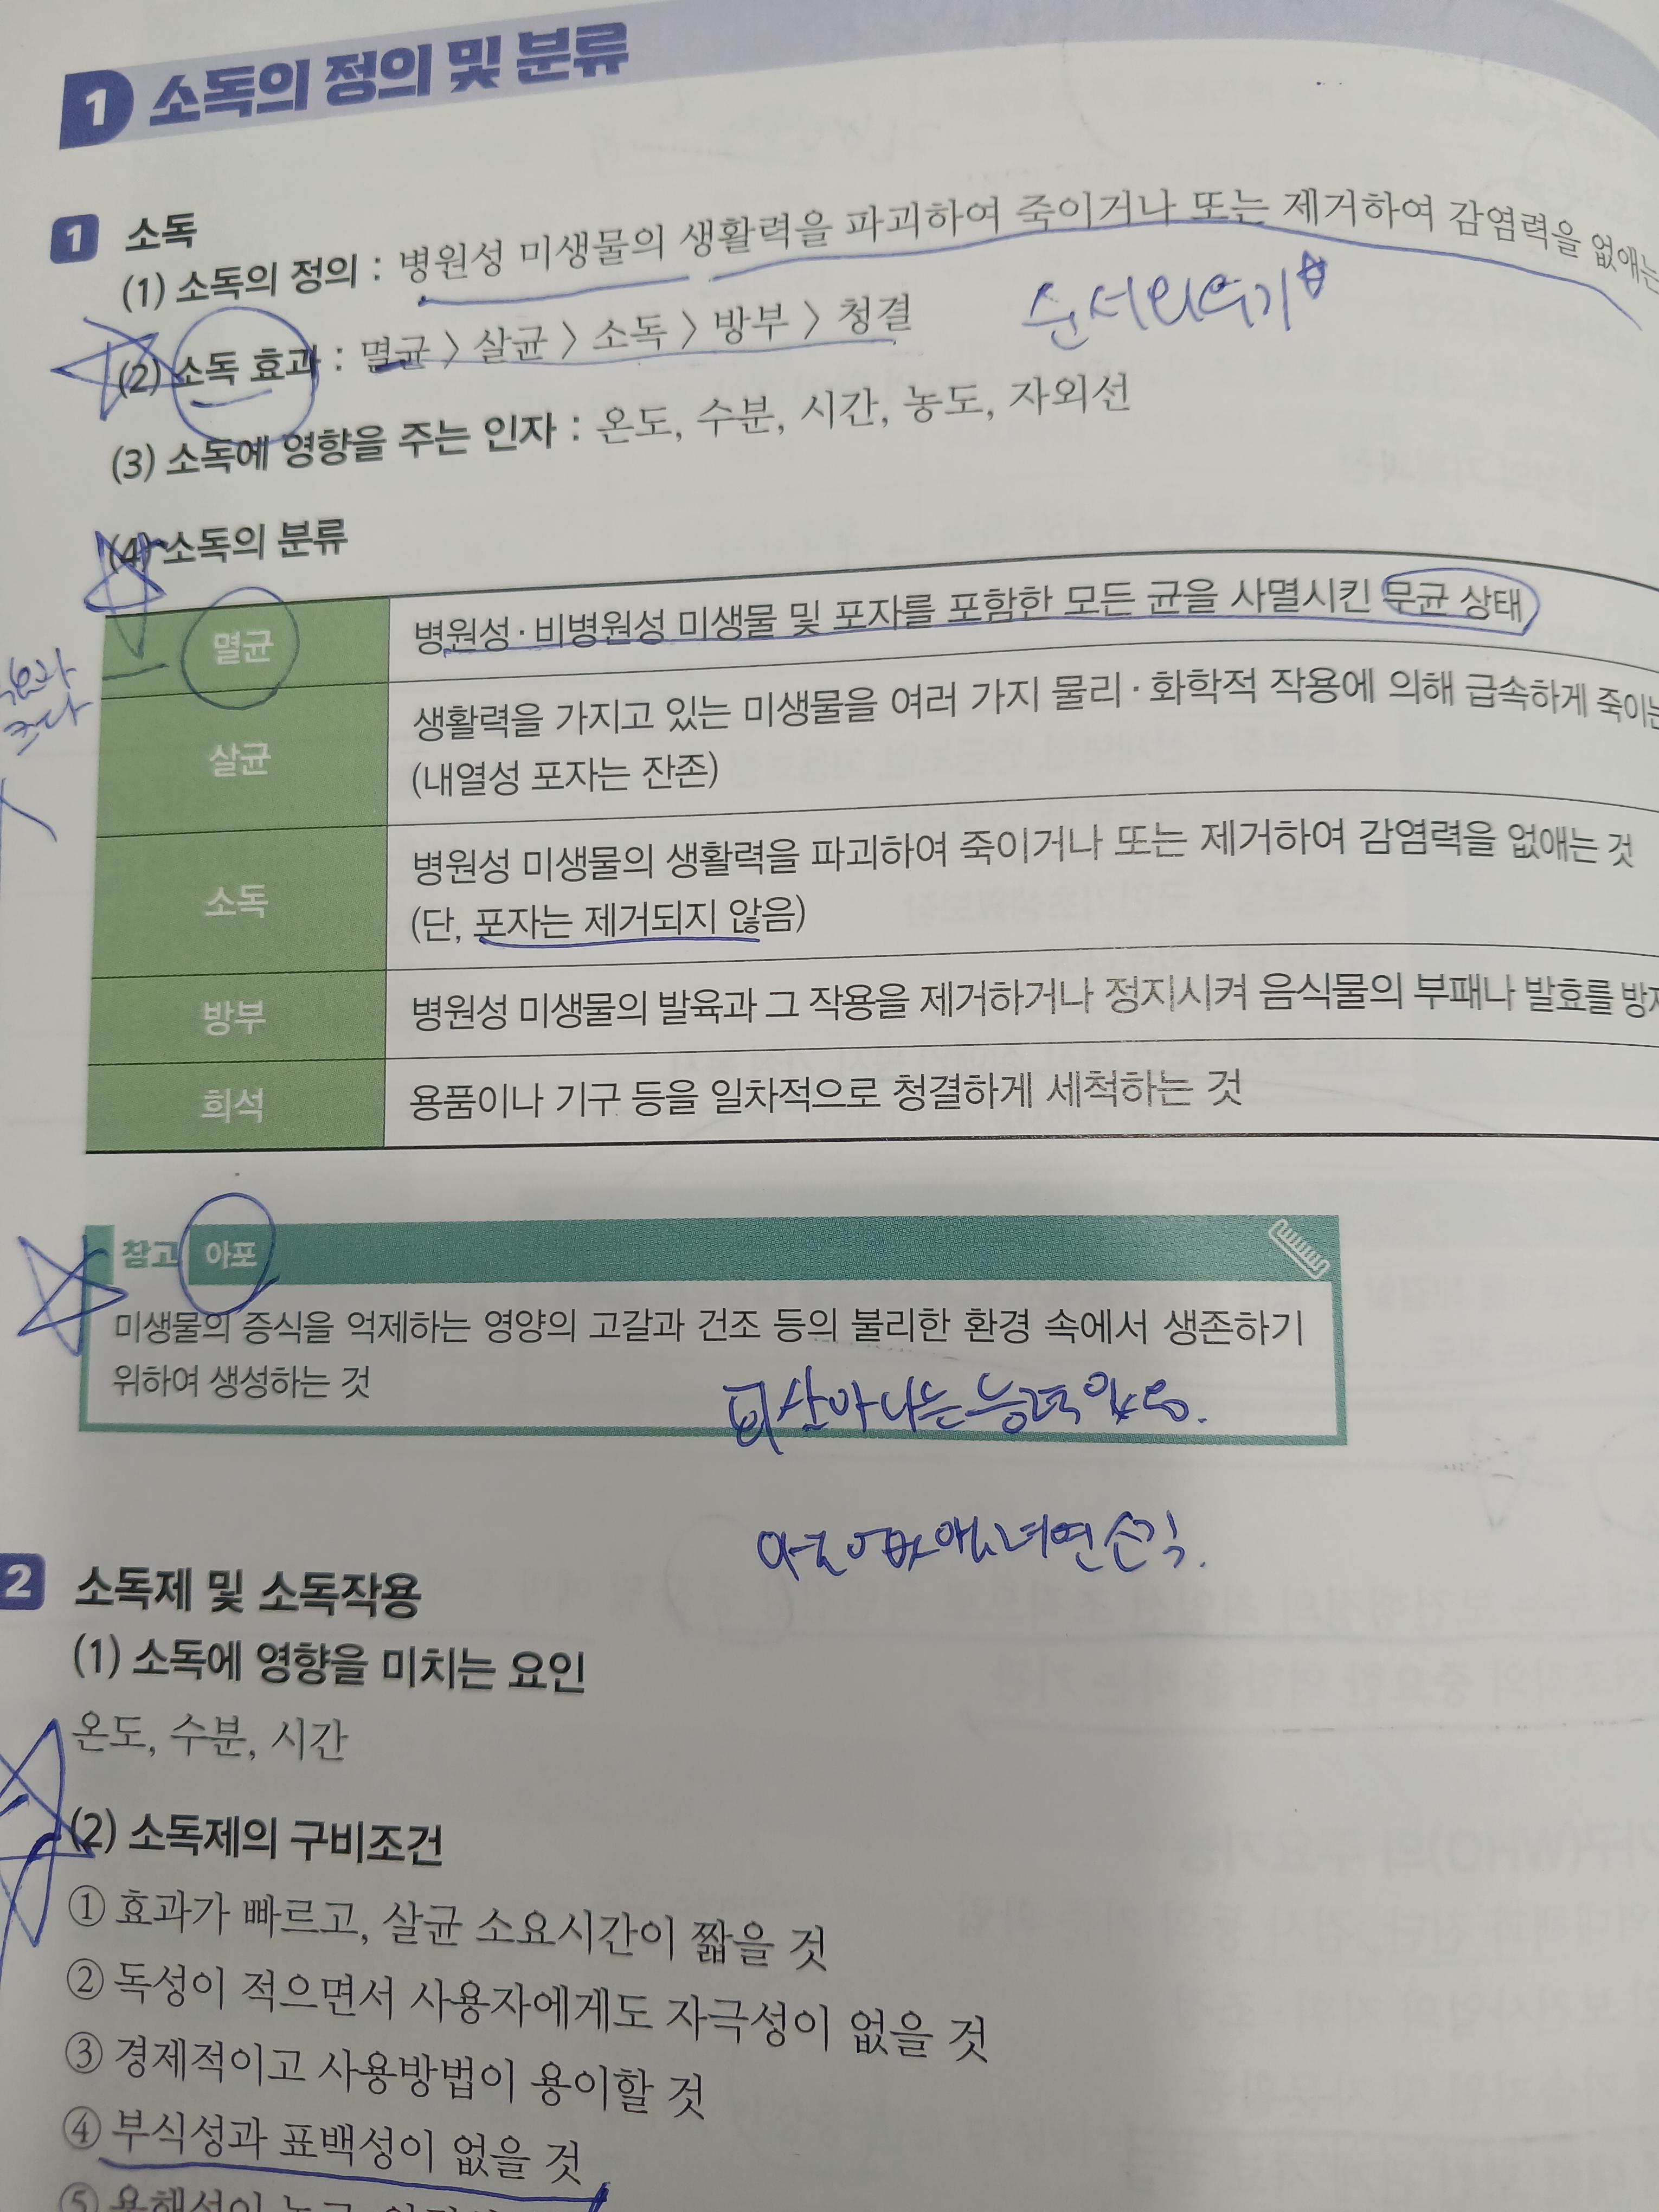 1 소독의 정의 및 분류
1 소독
(1) 소독의 정의 : 병원성 미생물의 생활력을 파괴하여 죽이거나 또는 제거하여 감염력을 없애는
(2) 소독 효과 : 멸균 > 살균 > 소독 > 방부 > 청결
순서외우기
(3) 소독에 영향을 주는 인자 : 온도, 수분, 시간, 농도, 자외선
(4) 소독의 분류
멸균 병원성·비병원성 미생물 및 포자를 포함한 모든 균을 사멸시킨 무균 상태
살균 생활력을 가지고 있는 미생물을 여러 가지 물리·화학적 작용에 의해 급속하게 죽이는
(내열성 포자는 잔존)
소독 병원성 미생물의 생활력을 파괴하여 죽이거나 또는 제거하여 감염력을 없애는 것
(단, 포자는 제거되지 않음)
방부 병원성 미생물의 발육과 그 작용을 제거하거나 정지시켜 음식물의 부패나 발효를 방지
희석 용품이나 기구 등을 일차적으로 청결하게 세척하는 것
참고 아포
미생물의 증식을 억제하는 영양의 고갈과 건조 등의 불리한 환경 속에서 생존하기
위하여 생성하는 것
살아나는 능력있음.
2 소독제 및 소독작용
(1) 소독에 영향을 미치는 요인
온도, 수분, 시간
(2) 소독제의 구비조건
① 효과가 빠르고, 살균 소요시간이 짧을 것
② 독성이 적으면서 사용자에게도 자극성이 없을 것
③ 경제적이고 사용방법이 용이할 것
④ 부식성과 표백성이 없을 것
⑤ 용해성이 높고,